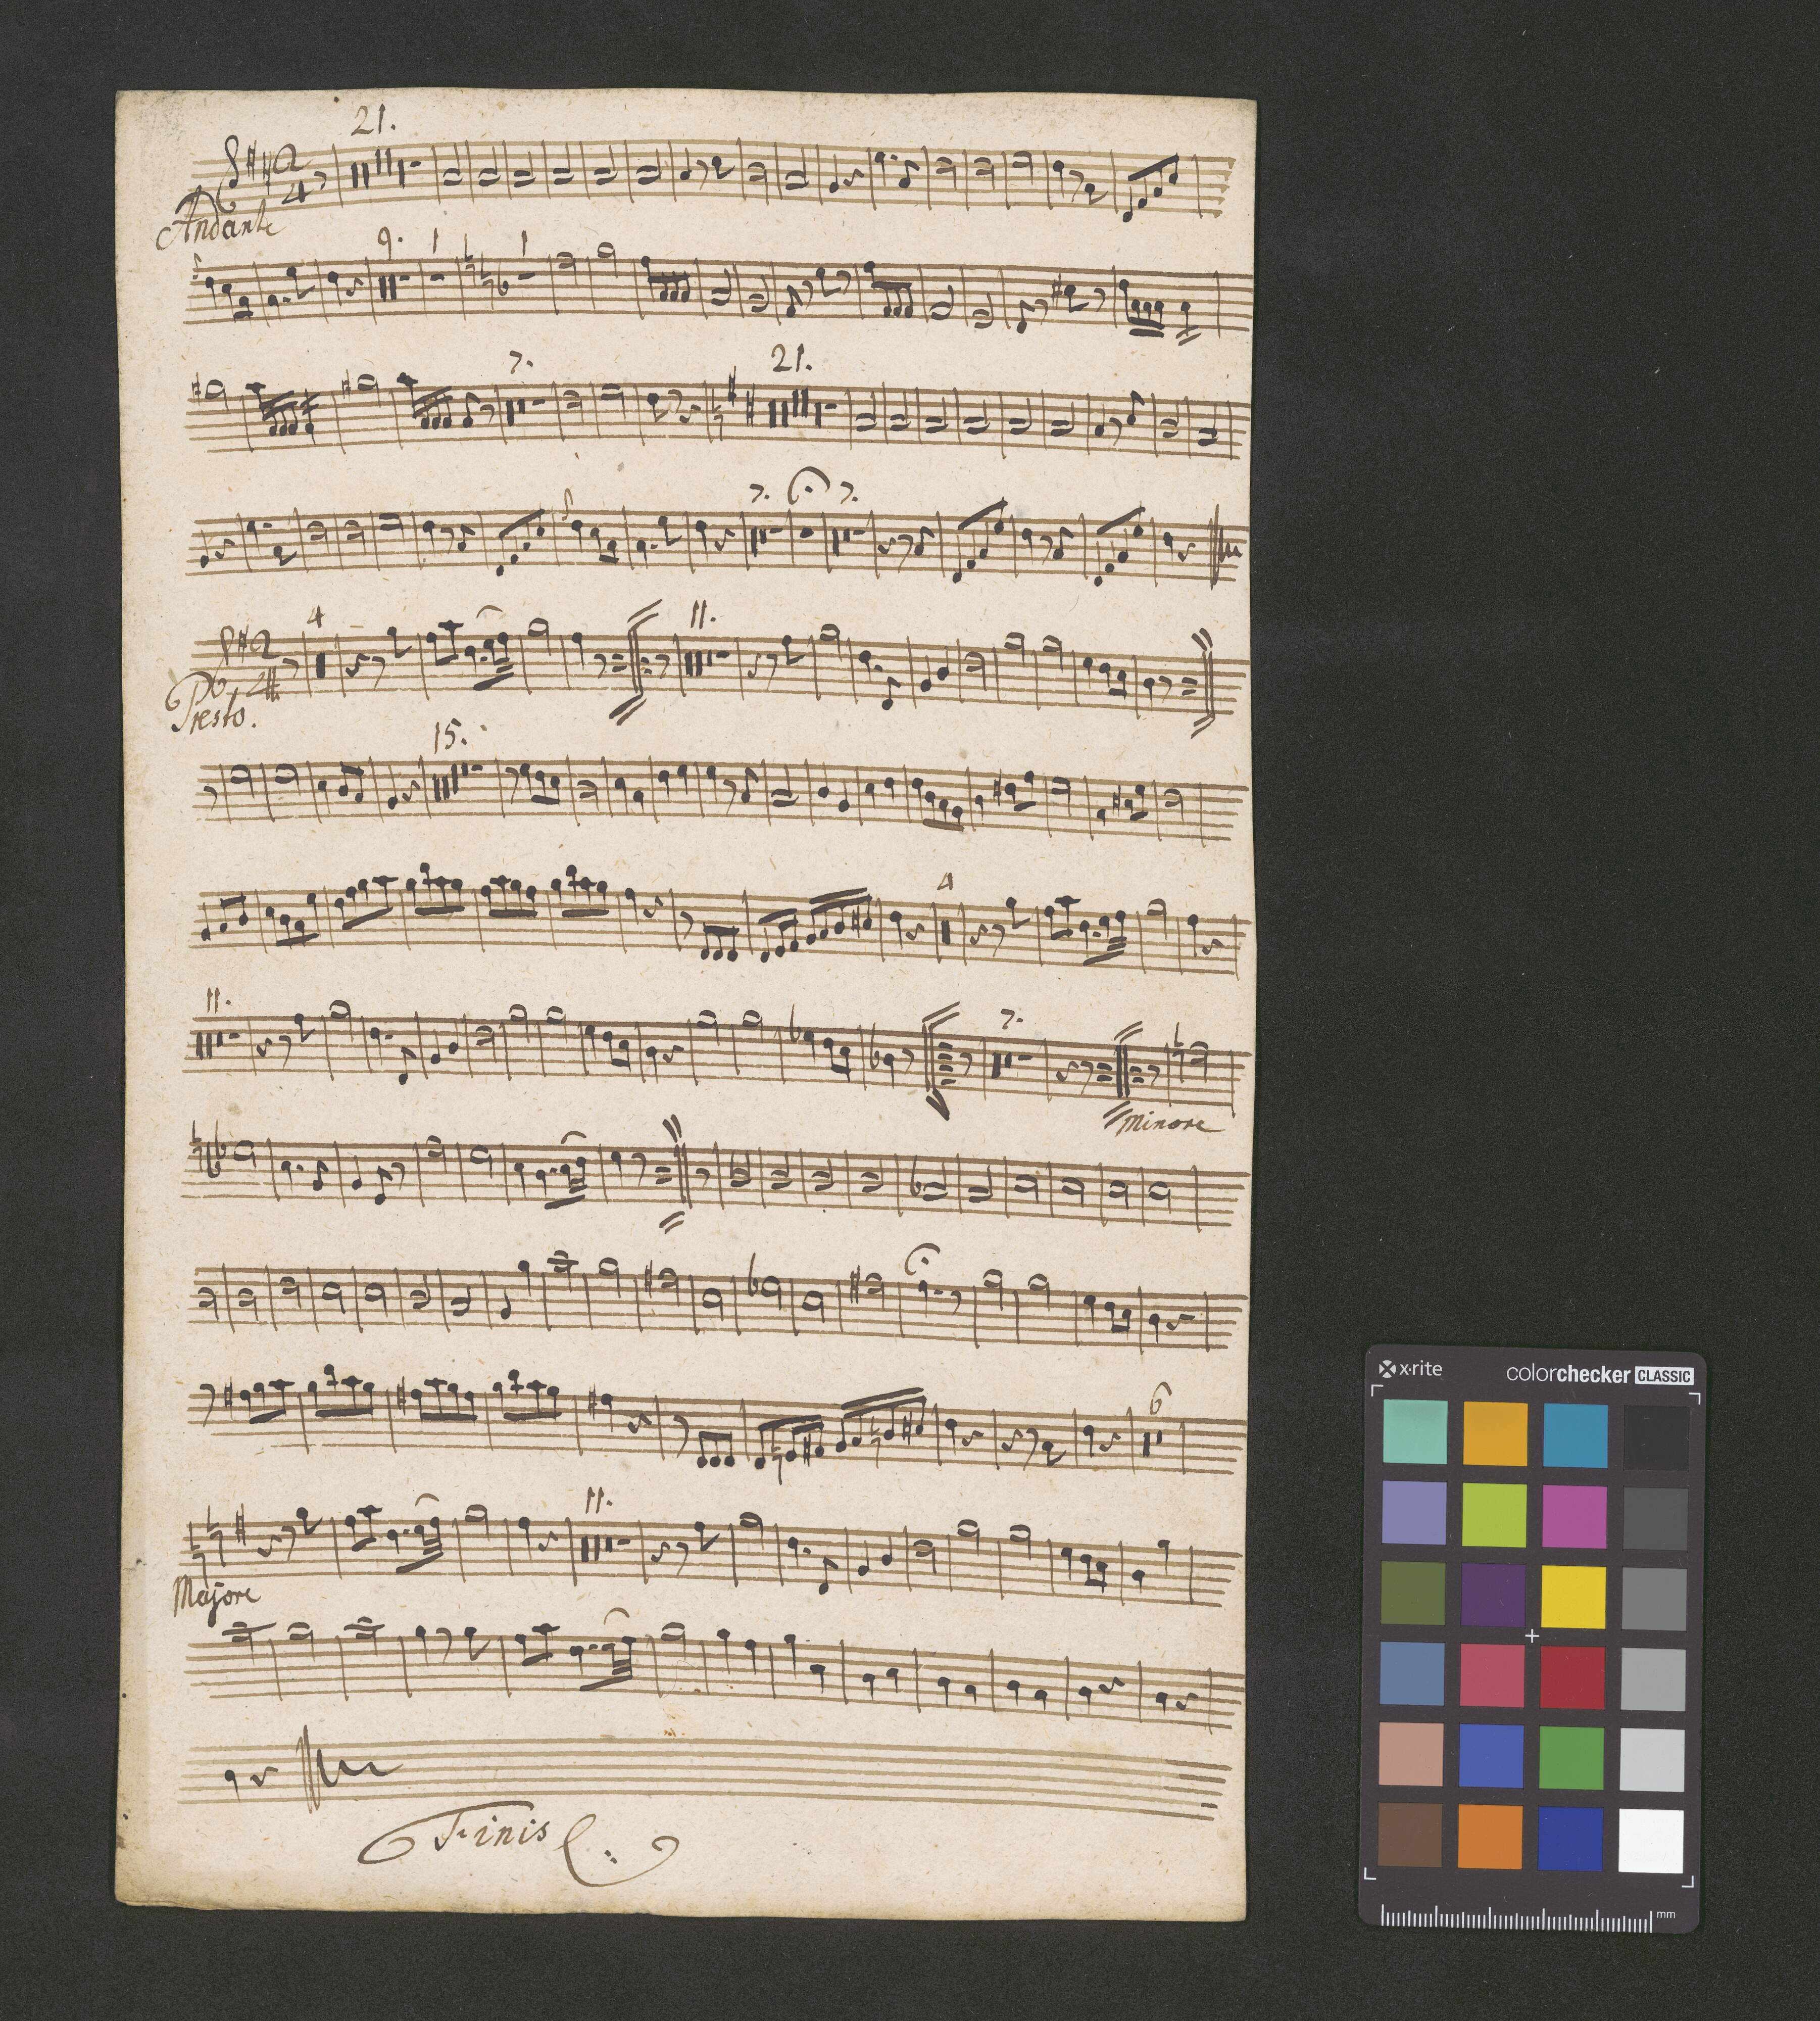 21.
2
4
Andante
9. 1 1
7. 21.
7. 7.
4 11.
2
4
Presto.
15.
4
11. 7.
Minore
6
11.
Majore
Finis
x·rite colorchecker CLASSIC
mm